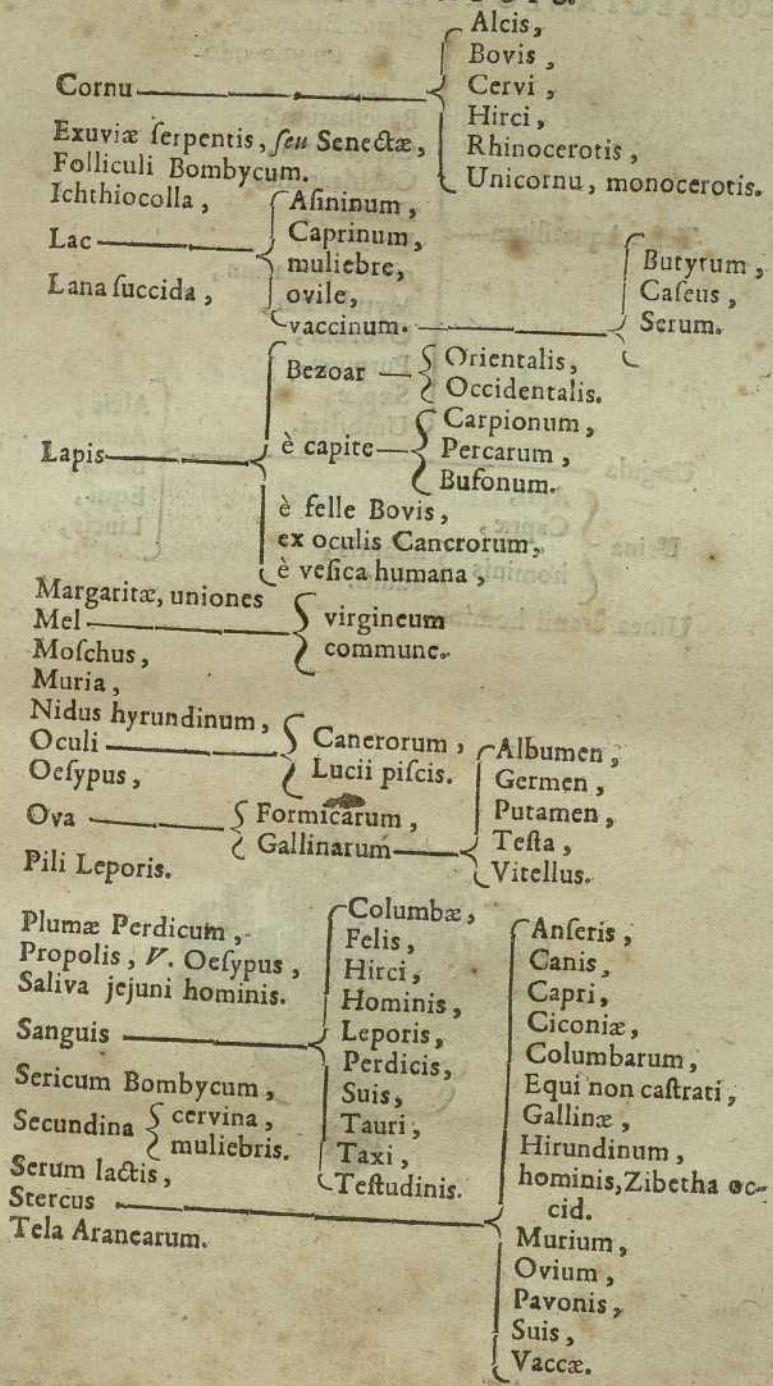 Cornu
Alcis,
Bovis,
Cervi,
Hirci,
Rhinocerotis,
Unicornu, monocerotis.
Exuviæ ſerpentis, ſeu Senectæ,
Folliculi Bombycum.
Ichthiocolla,
Lac
Aſininum,
Caprinum,
muliebre,
ovile,
vaccinum.
Butyrum,
Caſeus,
Serum.
Lana ſuccida,
Lapis
Bezoar
Orientalis,
Occidentalis.
è capite
Carpionum,
Percarum,
Bufonum.
è felle Bovis,
ex oculis Cancrorum,
è veſica humana,
Margaritæ, uniones
Mel
virgineum
commune.
Moſchus,
Muria,
Nidus hyrundinum,
Oculi
Cancrorum,
Lucii piſcis.
Oeſypus,
Ova
Formicarum,
Gallinarum
Albumen,
Germen,
Putamen,
Teſta,
Vitellus.
Pili Leporis.
Plumæ Perdicum,
Propolis, V. Oeſypus,
Saliva jejuni hominis.
Sanguis
Columbæ,
Felis,
Hirci,
Hominis,
Leporis,
Perdicis,
Suis,
Tauri,
Taxi,
Teſtudinis.
Sericum Bombycum,
Secundina
cervina,
muliebris.
Serum lactis,
Stercus
Anſeris,
Canis,
Capri,
Ciconiæ,
Columbarum,
Equi non caſtrati,
Gallinæ,
Hirundinum,
hominis, Zibetha oc-
cid.
Murium,
Ovium,
Pavonis,
Suis,
Vaccæ.
Tela Aranearum.